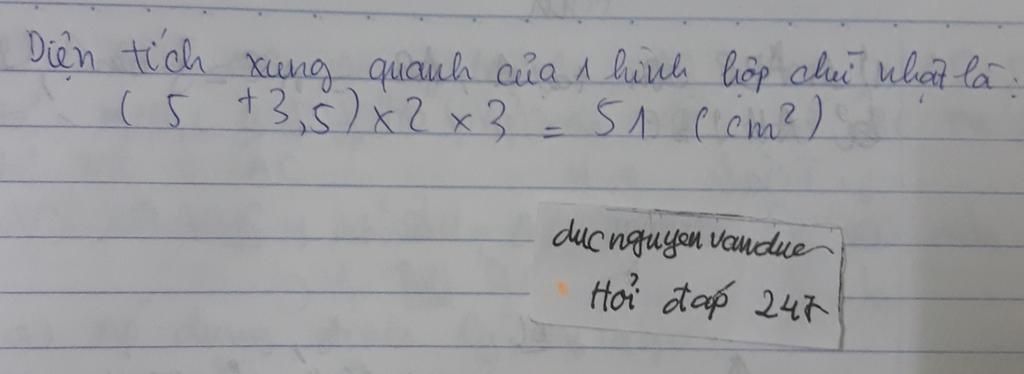 Diện tích xung quanh của 1 hình hộp chữ nhật là:
(5 +3,5)×2×3 = 51 (cm²)
ducnguyenvanduc
Hỏi đáp 247